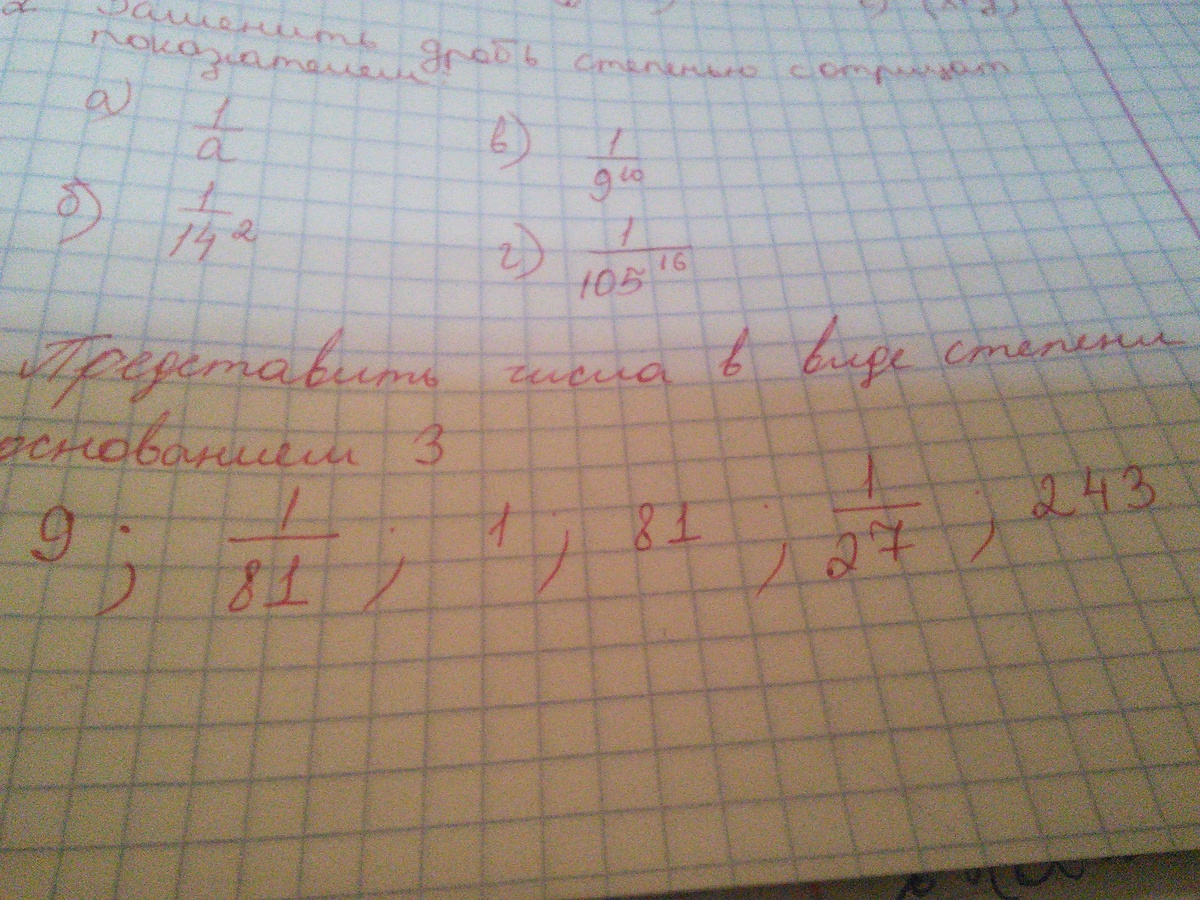 2 Заменить дробь степенью с отрицат
показателем:
а) 1/a в) 1/9¹⁰
б) 1/14² г) 1/105¹⁶
Представить числа в виде степени
основанием 3
9; 1/81; 1; 81; 1/27; 243